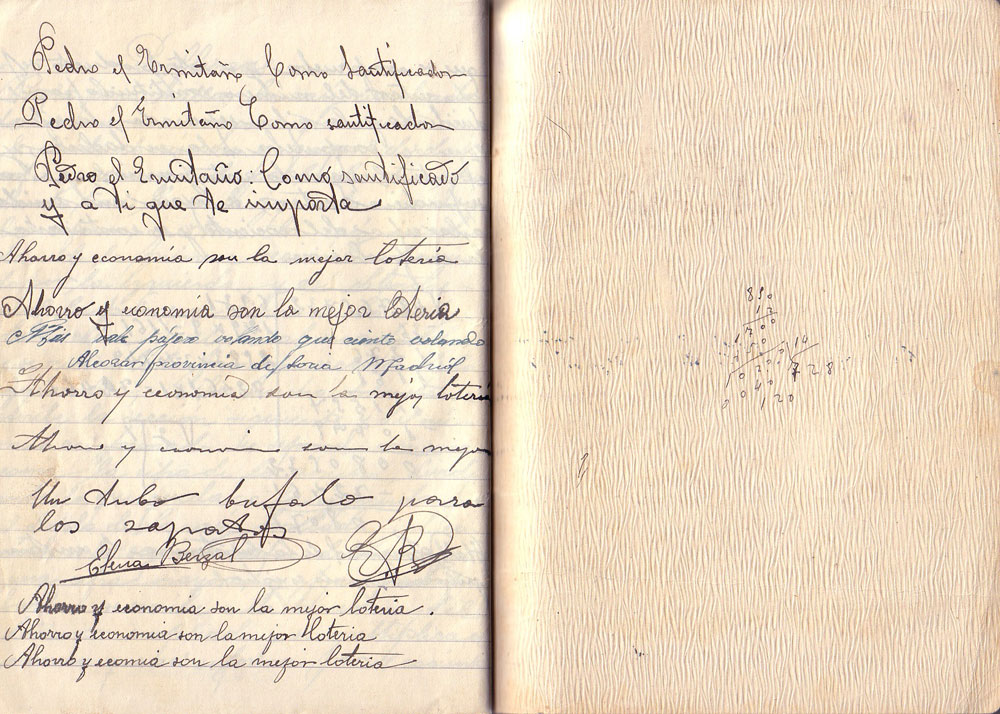 Pedro el Ermitaño Como Santificador
Pedro el Ermitaño Como santificador
Pedro el Ermitaño: Como santificado
y a ti que te importa
Ahorro y economía son la mejor lotería
Ahorro y economía son la mejor loteria
Más vale pájaro volando que ciento volando
Alcozar provincia de Soria Madrid
Ahorro y economía son la mejor lotería
Ahorro y economia son la mejor
Un tubo bufalo para
los zapatos
Elena Berzal
EB
Ahorro y economia son la mejor loteria.
Ahorro y economia son la mejor lloteria
Ahorro y ecomia son la mejor loteria
850